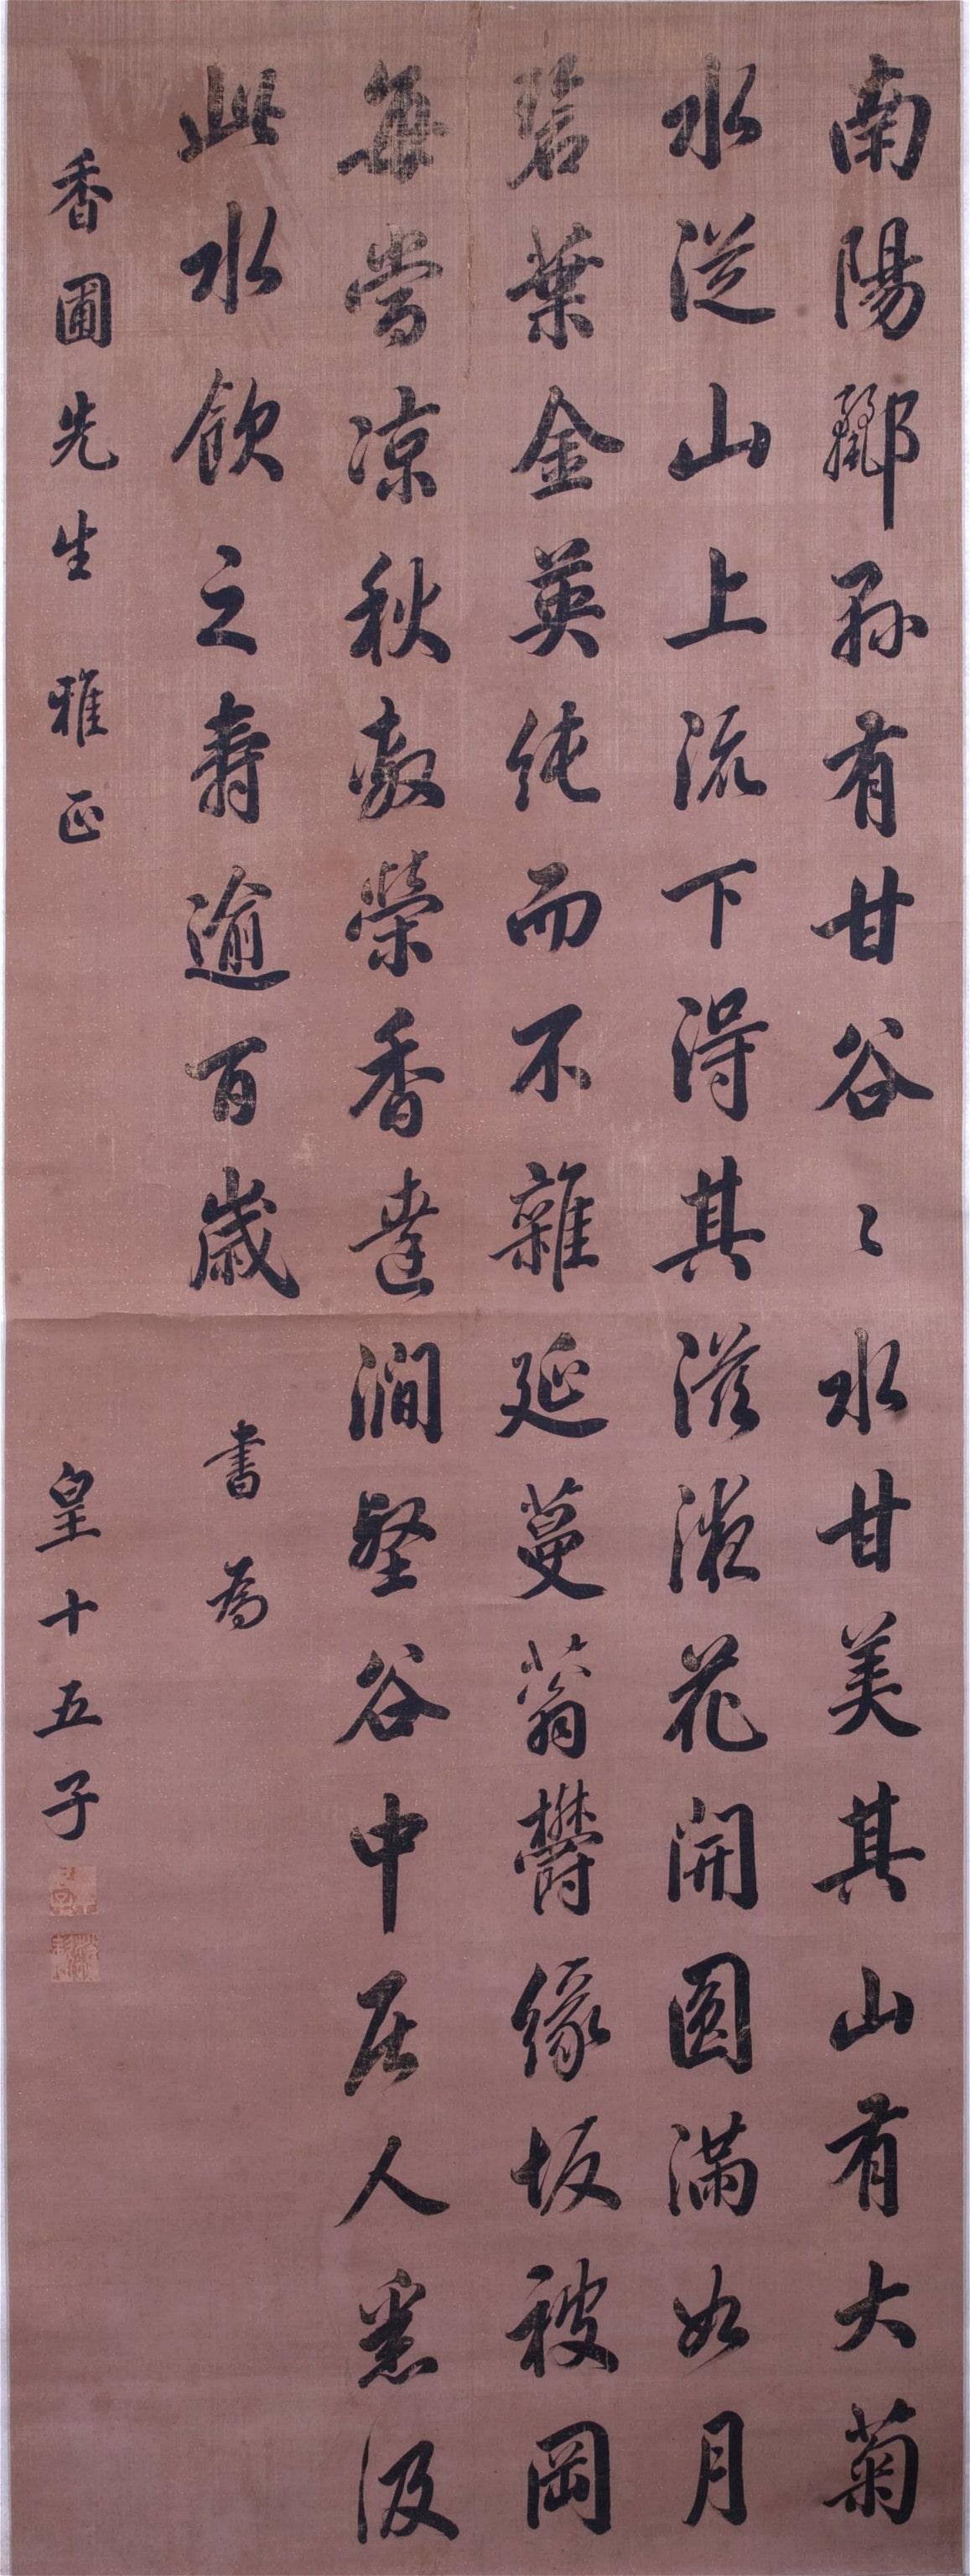 南陽酈縣有甘谷〻水甘美其山有大菊
水從山上流下得其滋液花開圓滿如月
碧葉金英純而不雜延蔓蓊欝緣坂被岡
每當凉秋敷榮香達澗壑谷中居人悉汲
此水飲之壽逾百歲
書為
香圃先生雅正
皇十五子